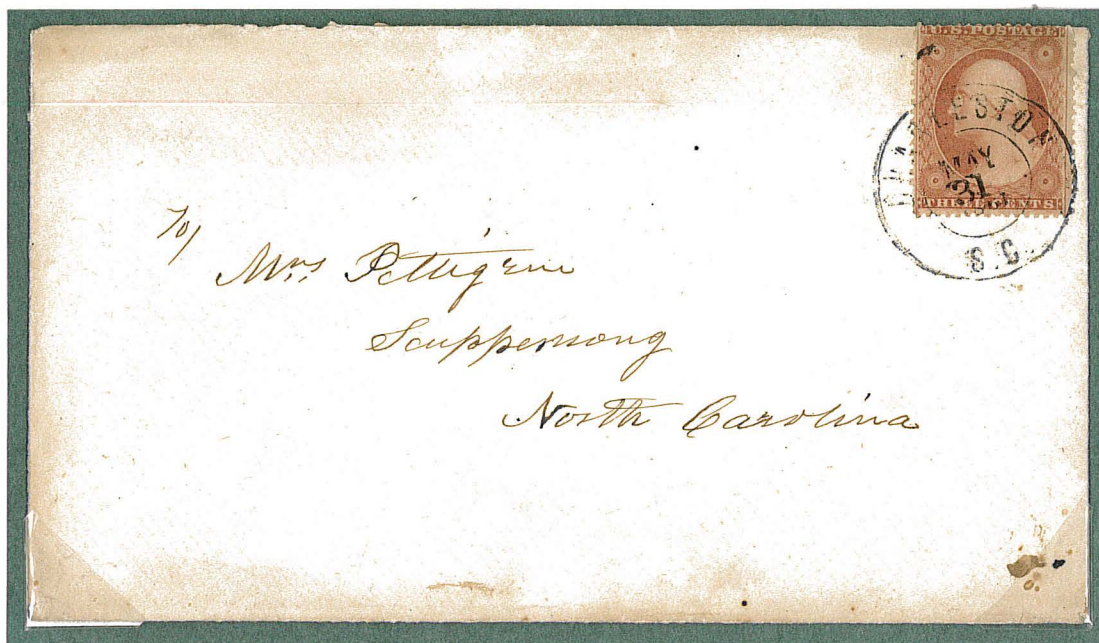 U.S. POSTAGE
THREE CENTS
CHARLESTON
MAY
31
S.C.
To/
Mrs. Pettigrew
Scuppernong
North Carolina